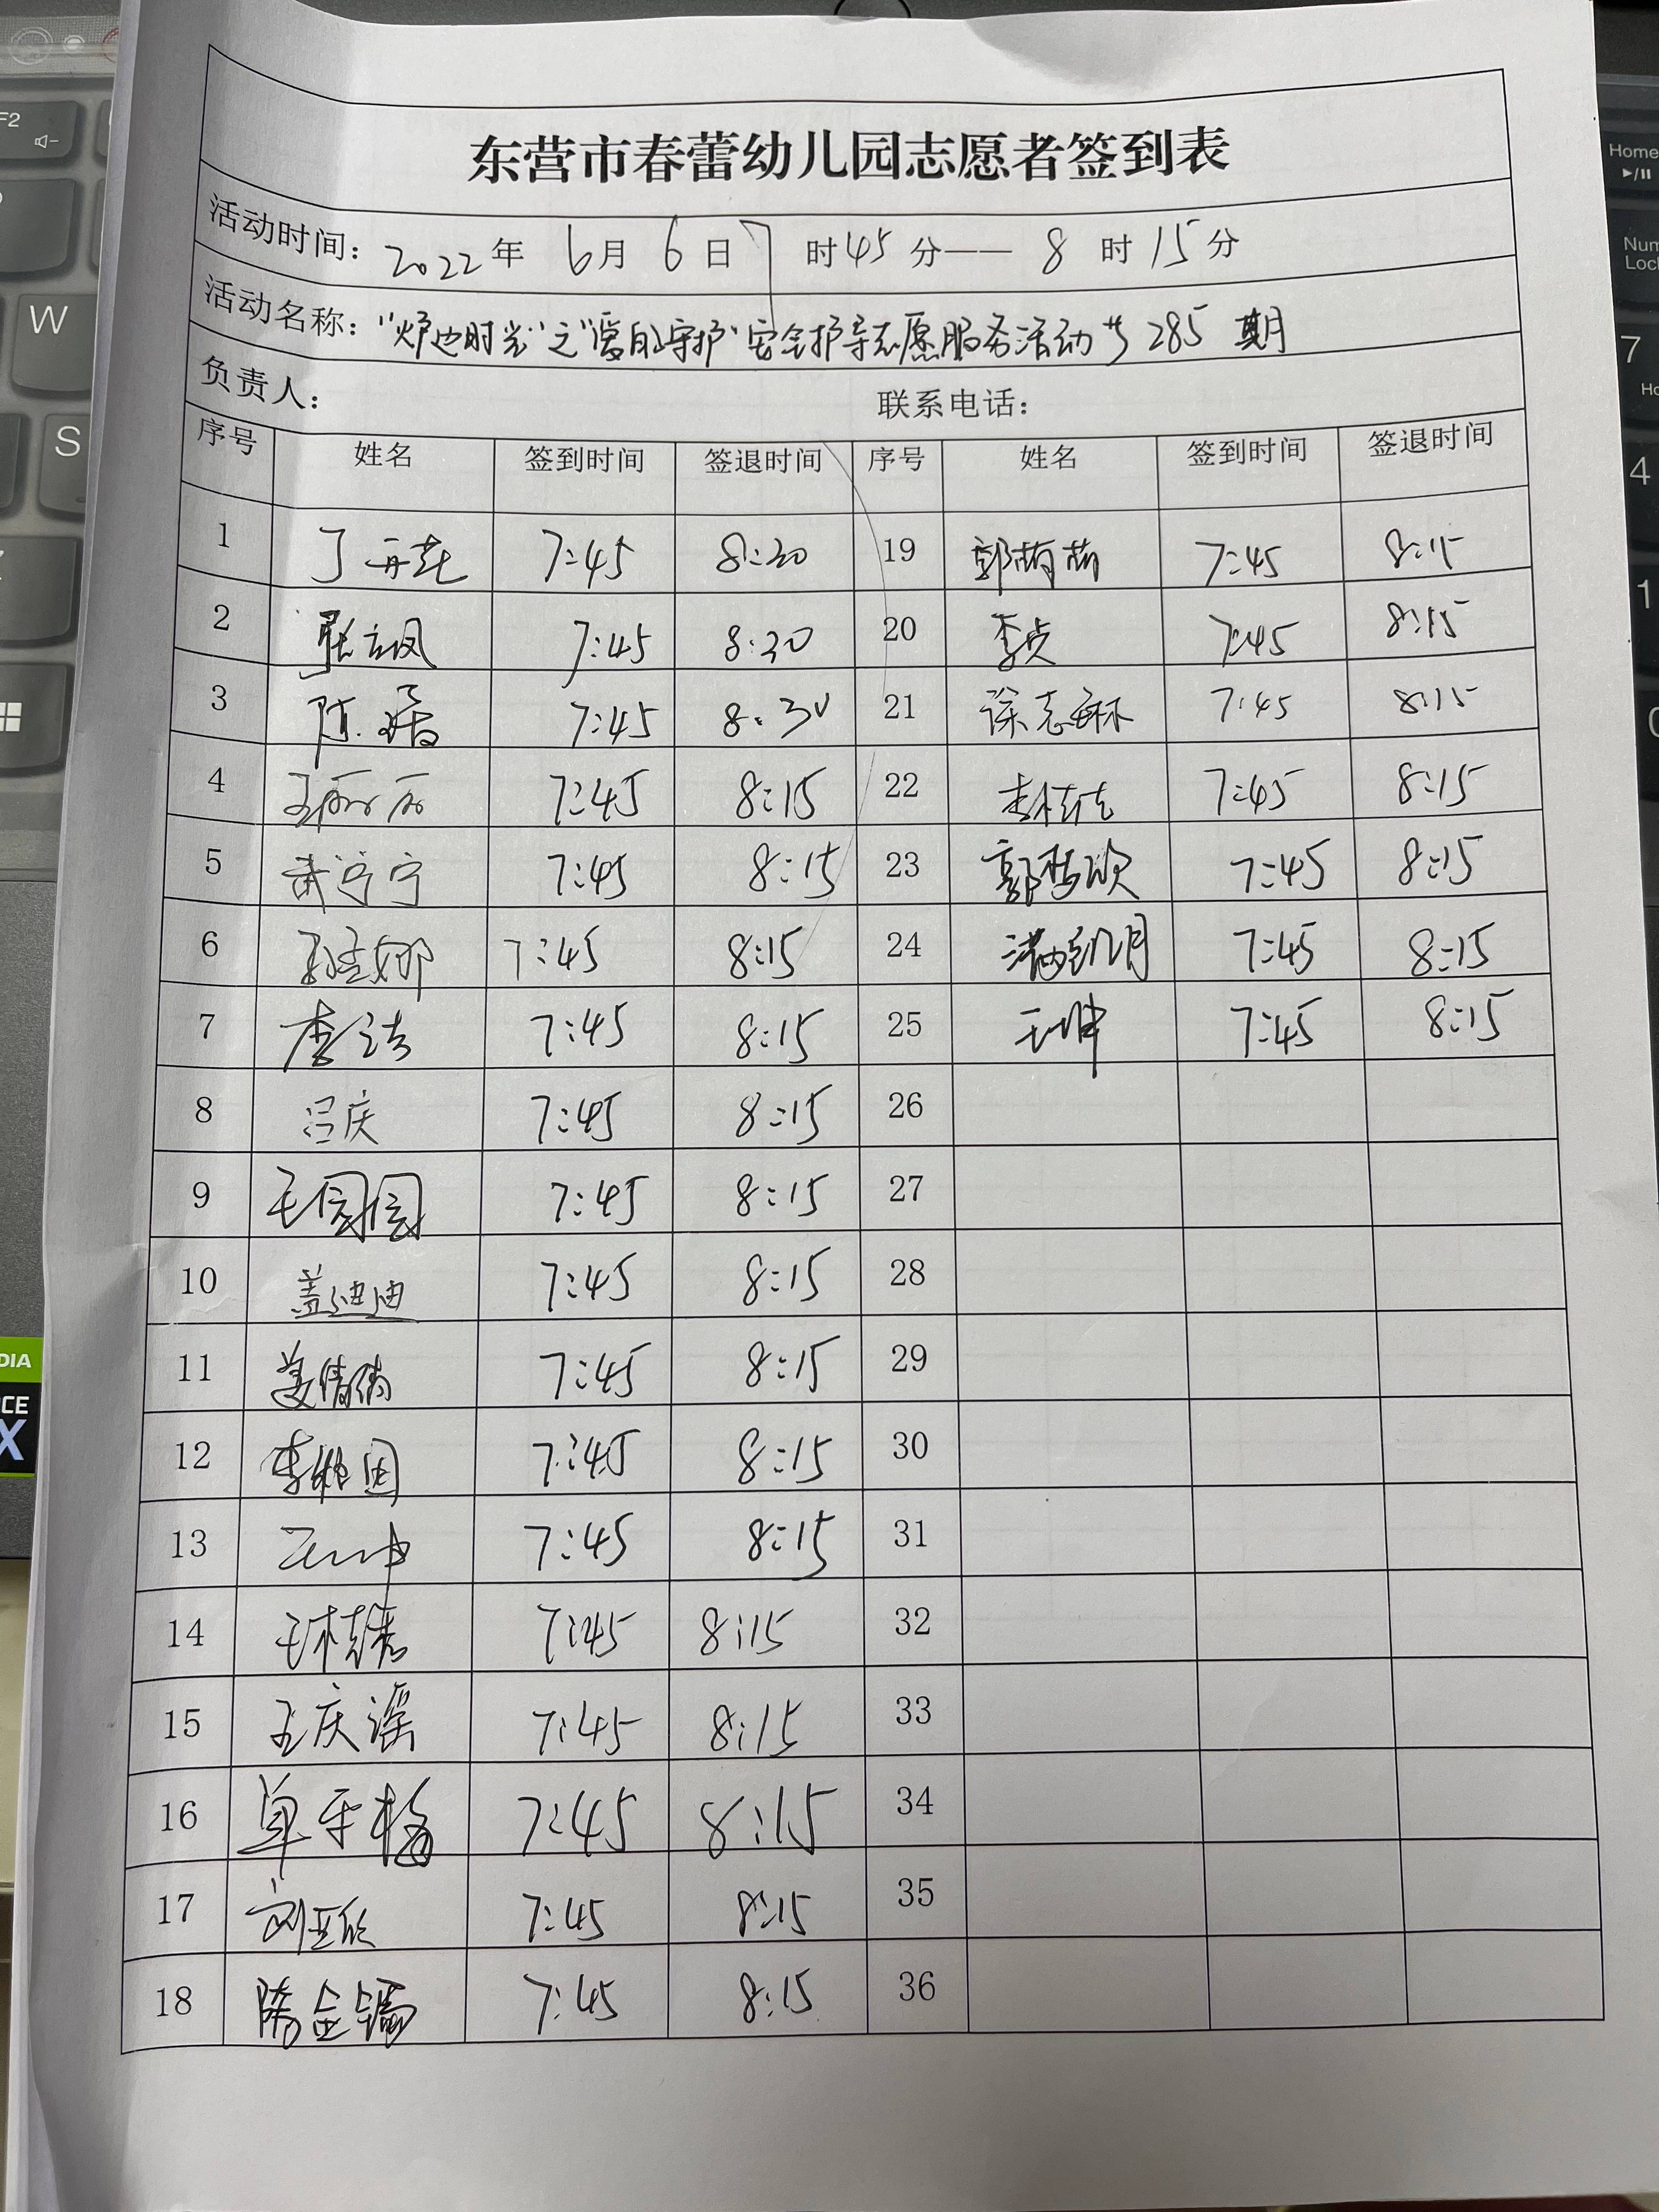 东营市春蕾幼儿园志愿者签到表
活动时间：2022年 6月 6日 7时45分——8时15分
活动名称："炉边时光"之"爱的守护"安全护导志愿服务活动 285期
负责人： 联系电话：
序号 姓名 签到时间 签退时间 序号 姓名 签到时间 签退时间
1 丁 7:45 8:30 19 郭萌萌 7:45 8:15
2 张立凤 7:45 8:30 20 李贞 7:45 8:15
3 陈 7:45 8:30 21 徐志琳 7:45 8:15
4 王丽丽 7:45 8:15 22 7:45 8:15
5 武宁宁 7:45 8:15 23 郭梦欣 7:45 8:15
6 娜 7:45 8:15 24 满 7:45 8:15
7 李洁 7:45 8:15 25 王坤 7:45 8:15
8 吕庆 7:45 8:15 26
9 毛园园 7:45 8:15 27
10 盖迪迪 7:45 8:15 28
11 姜倩倩 7:45 8:15 29
12 李 7:45 8:15 30
13 7:45 8:15 31
14 7:45 8:15 32
15 王庆瑶 7:45 8:15 33
16 单 7:45 8:15 34
17 刘亚欣 7:45 8:15 35
18 隋金 7:45 8:15 36
F2
W
S
Home
Num
Lock
7
4
1